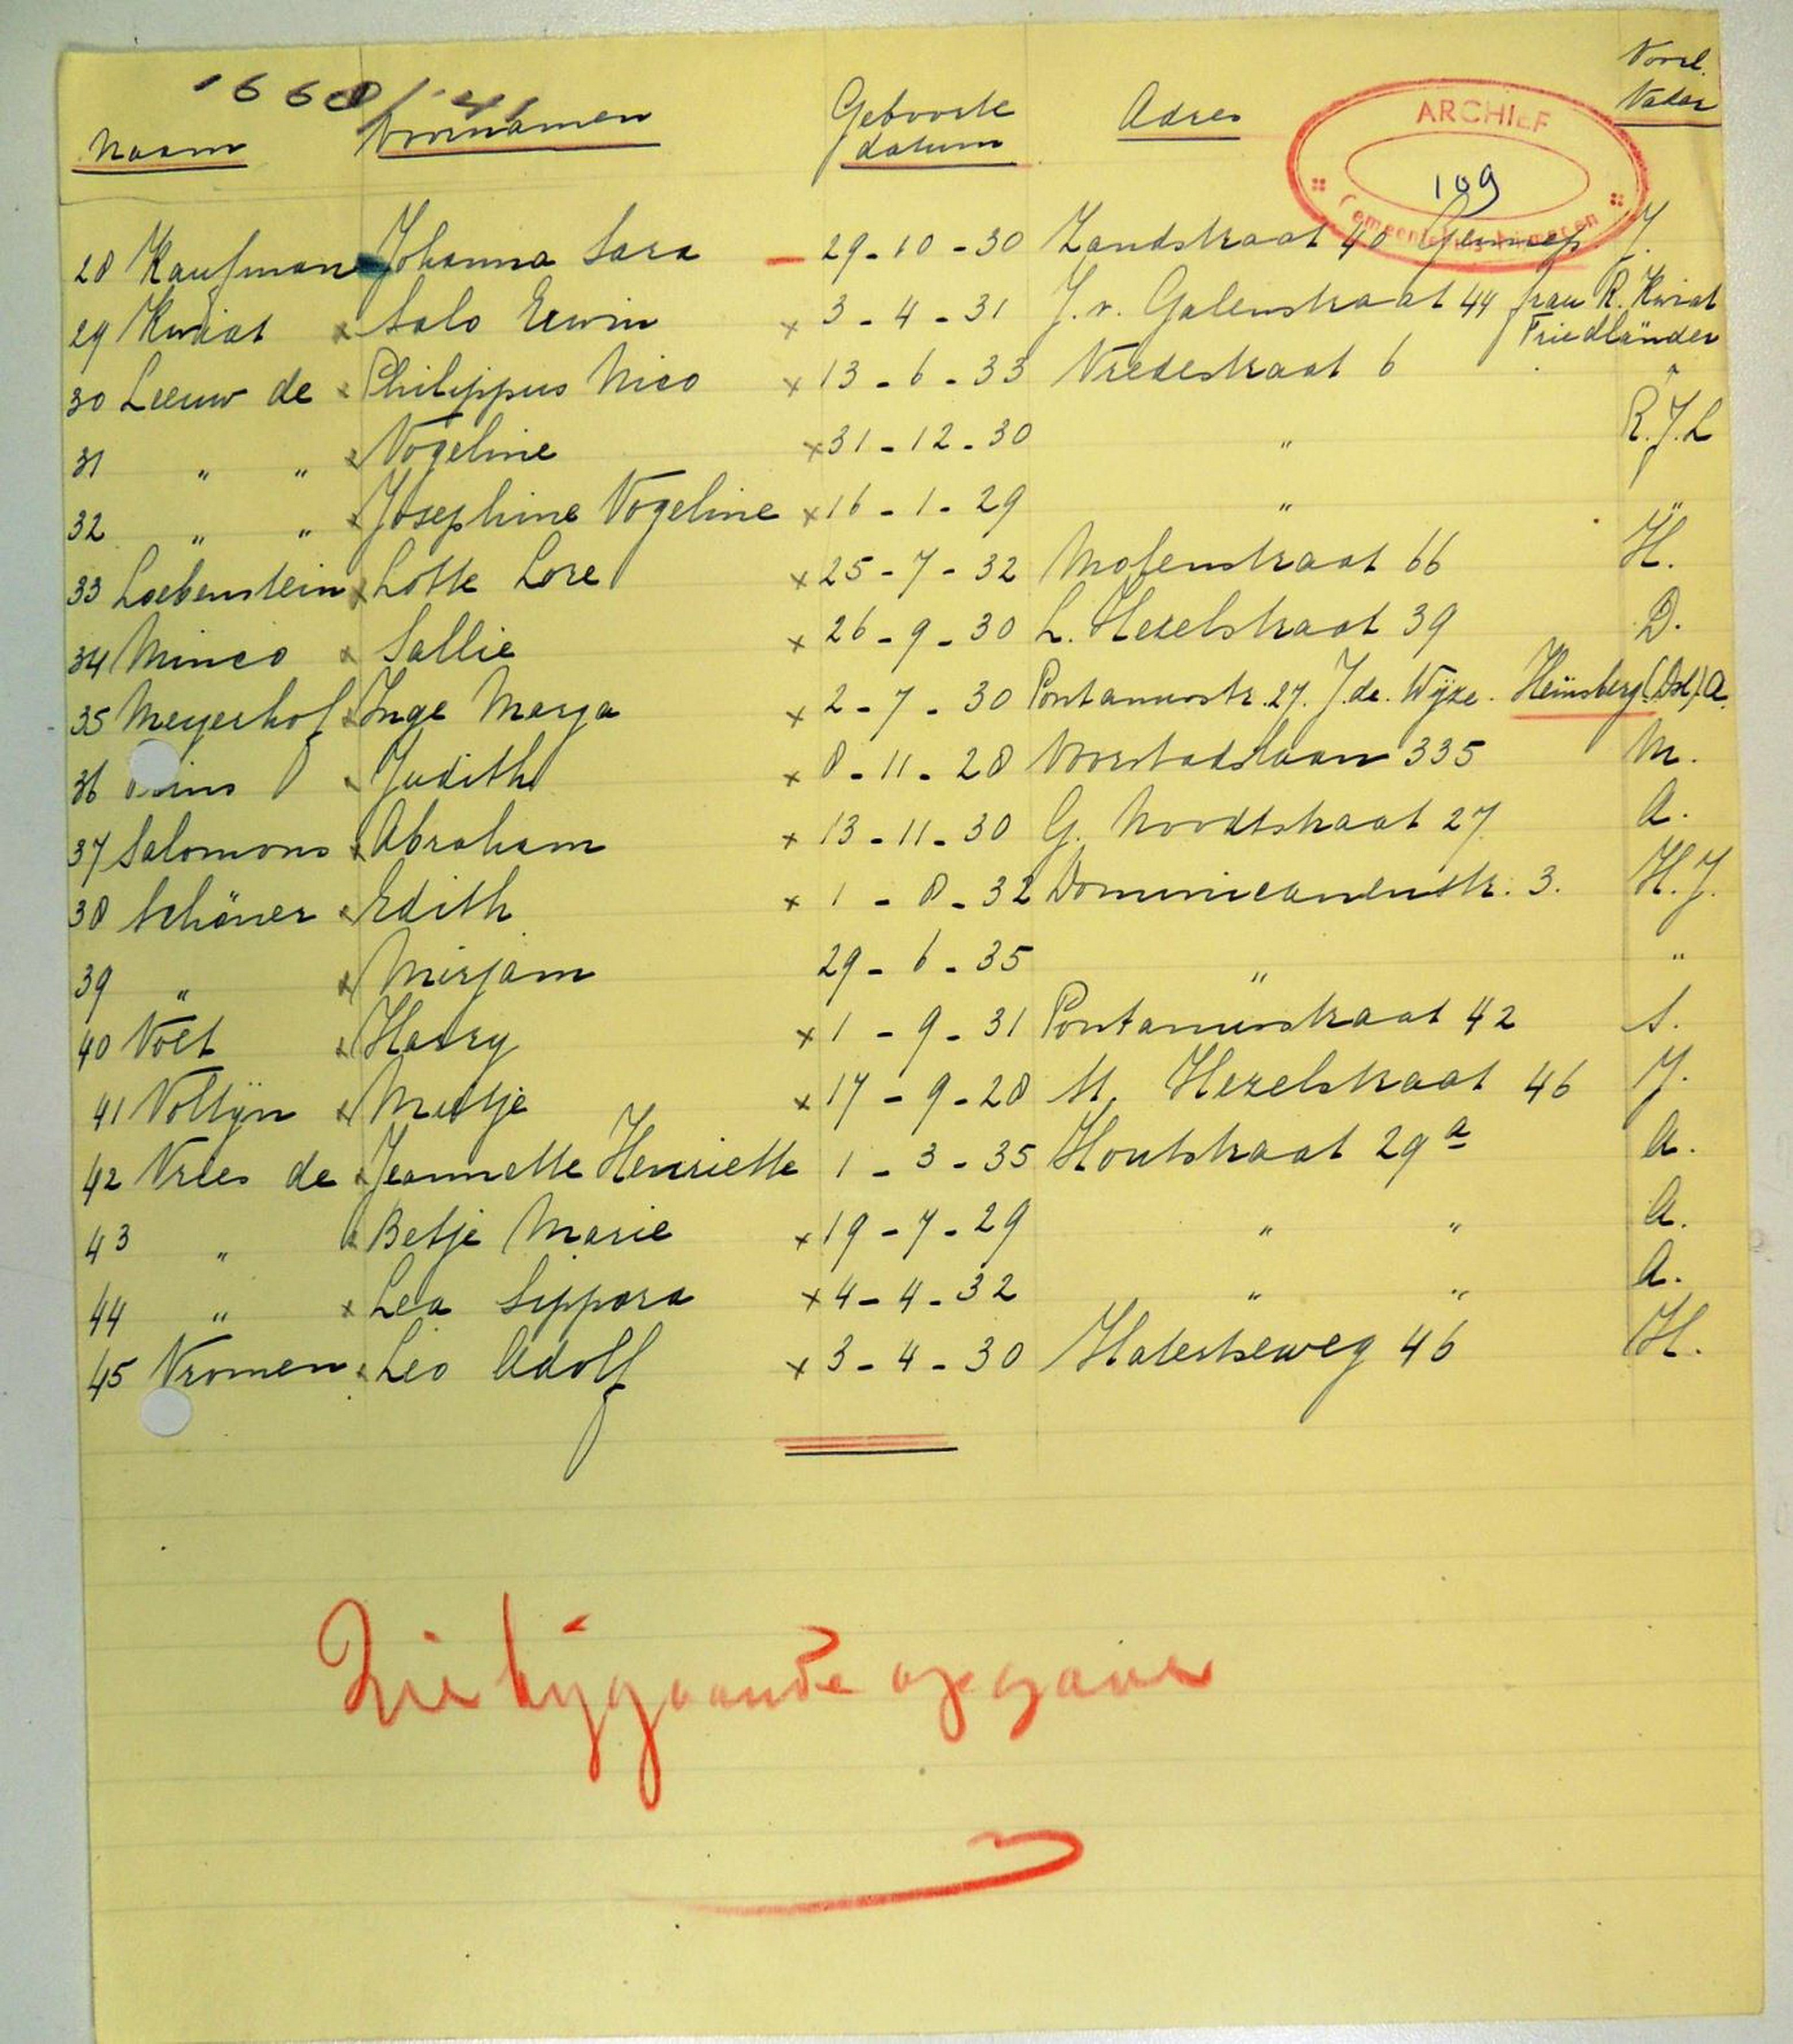 1668/'41
Voorl.
Vader
Naam Voornamen Geboorte datum Adres
ARCHIEF
109
Gemeentehuis Nijmegen
28 Kaufman Johanna Sara — 29-10-30 Zandstraat 40 Gennep J.
29 Kwiat x Salo Erwin x 3-4-31 J. v. Galenstraat 44 frau R. Kwiat Friedländer
30 Leeuw de x Philippus Nico x 13-6-33 Vredestraat 6 "
31 " " x Vogeline x 31-12-30 " R.J.L
32 " " x Josephine Vogeline x 16-1-29 " "
33 Loebenstein x Lotte Lore x 25-7-32 Molenstraat 66 H.
34 Minco x Sallie x 26-9-30 L. Hezelstraat 39 D.
35 Meyerhof x Inge Marga x 2-7-30 Pontanusstr. 27. J. de. Wijze. Heinsberg (Dsl) A.
36 x Judith x 8-11-28 Voorstadslaan 335 M.
37 Salomons x Abraham x 13-11-30 G. Noodtstraat 27. A.
38 Schöner x Edith x 1-8-32 Dominicanenstr. 3. H.J.
39 " x Mirjam 29-6-35 " "
40 Volt x Harry x 1-9-31 Pontanusstraat 42 S.
41 Voltijn x Mietje x 17-9-28 St. Hezelstraat 46 J.
42 Vries de x Jeannette Henriette 1-3-35 Houtstraat 29a A.
43 " x Betje Marie x 19-7-29 " " A.
44 " x Lea Sippora x 4-4-32 " " A.
45 Vromen x Leo Adolf x 3-4-30 Hatertseweg 46 H.
Zie bijgaande opgave